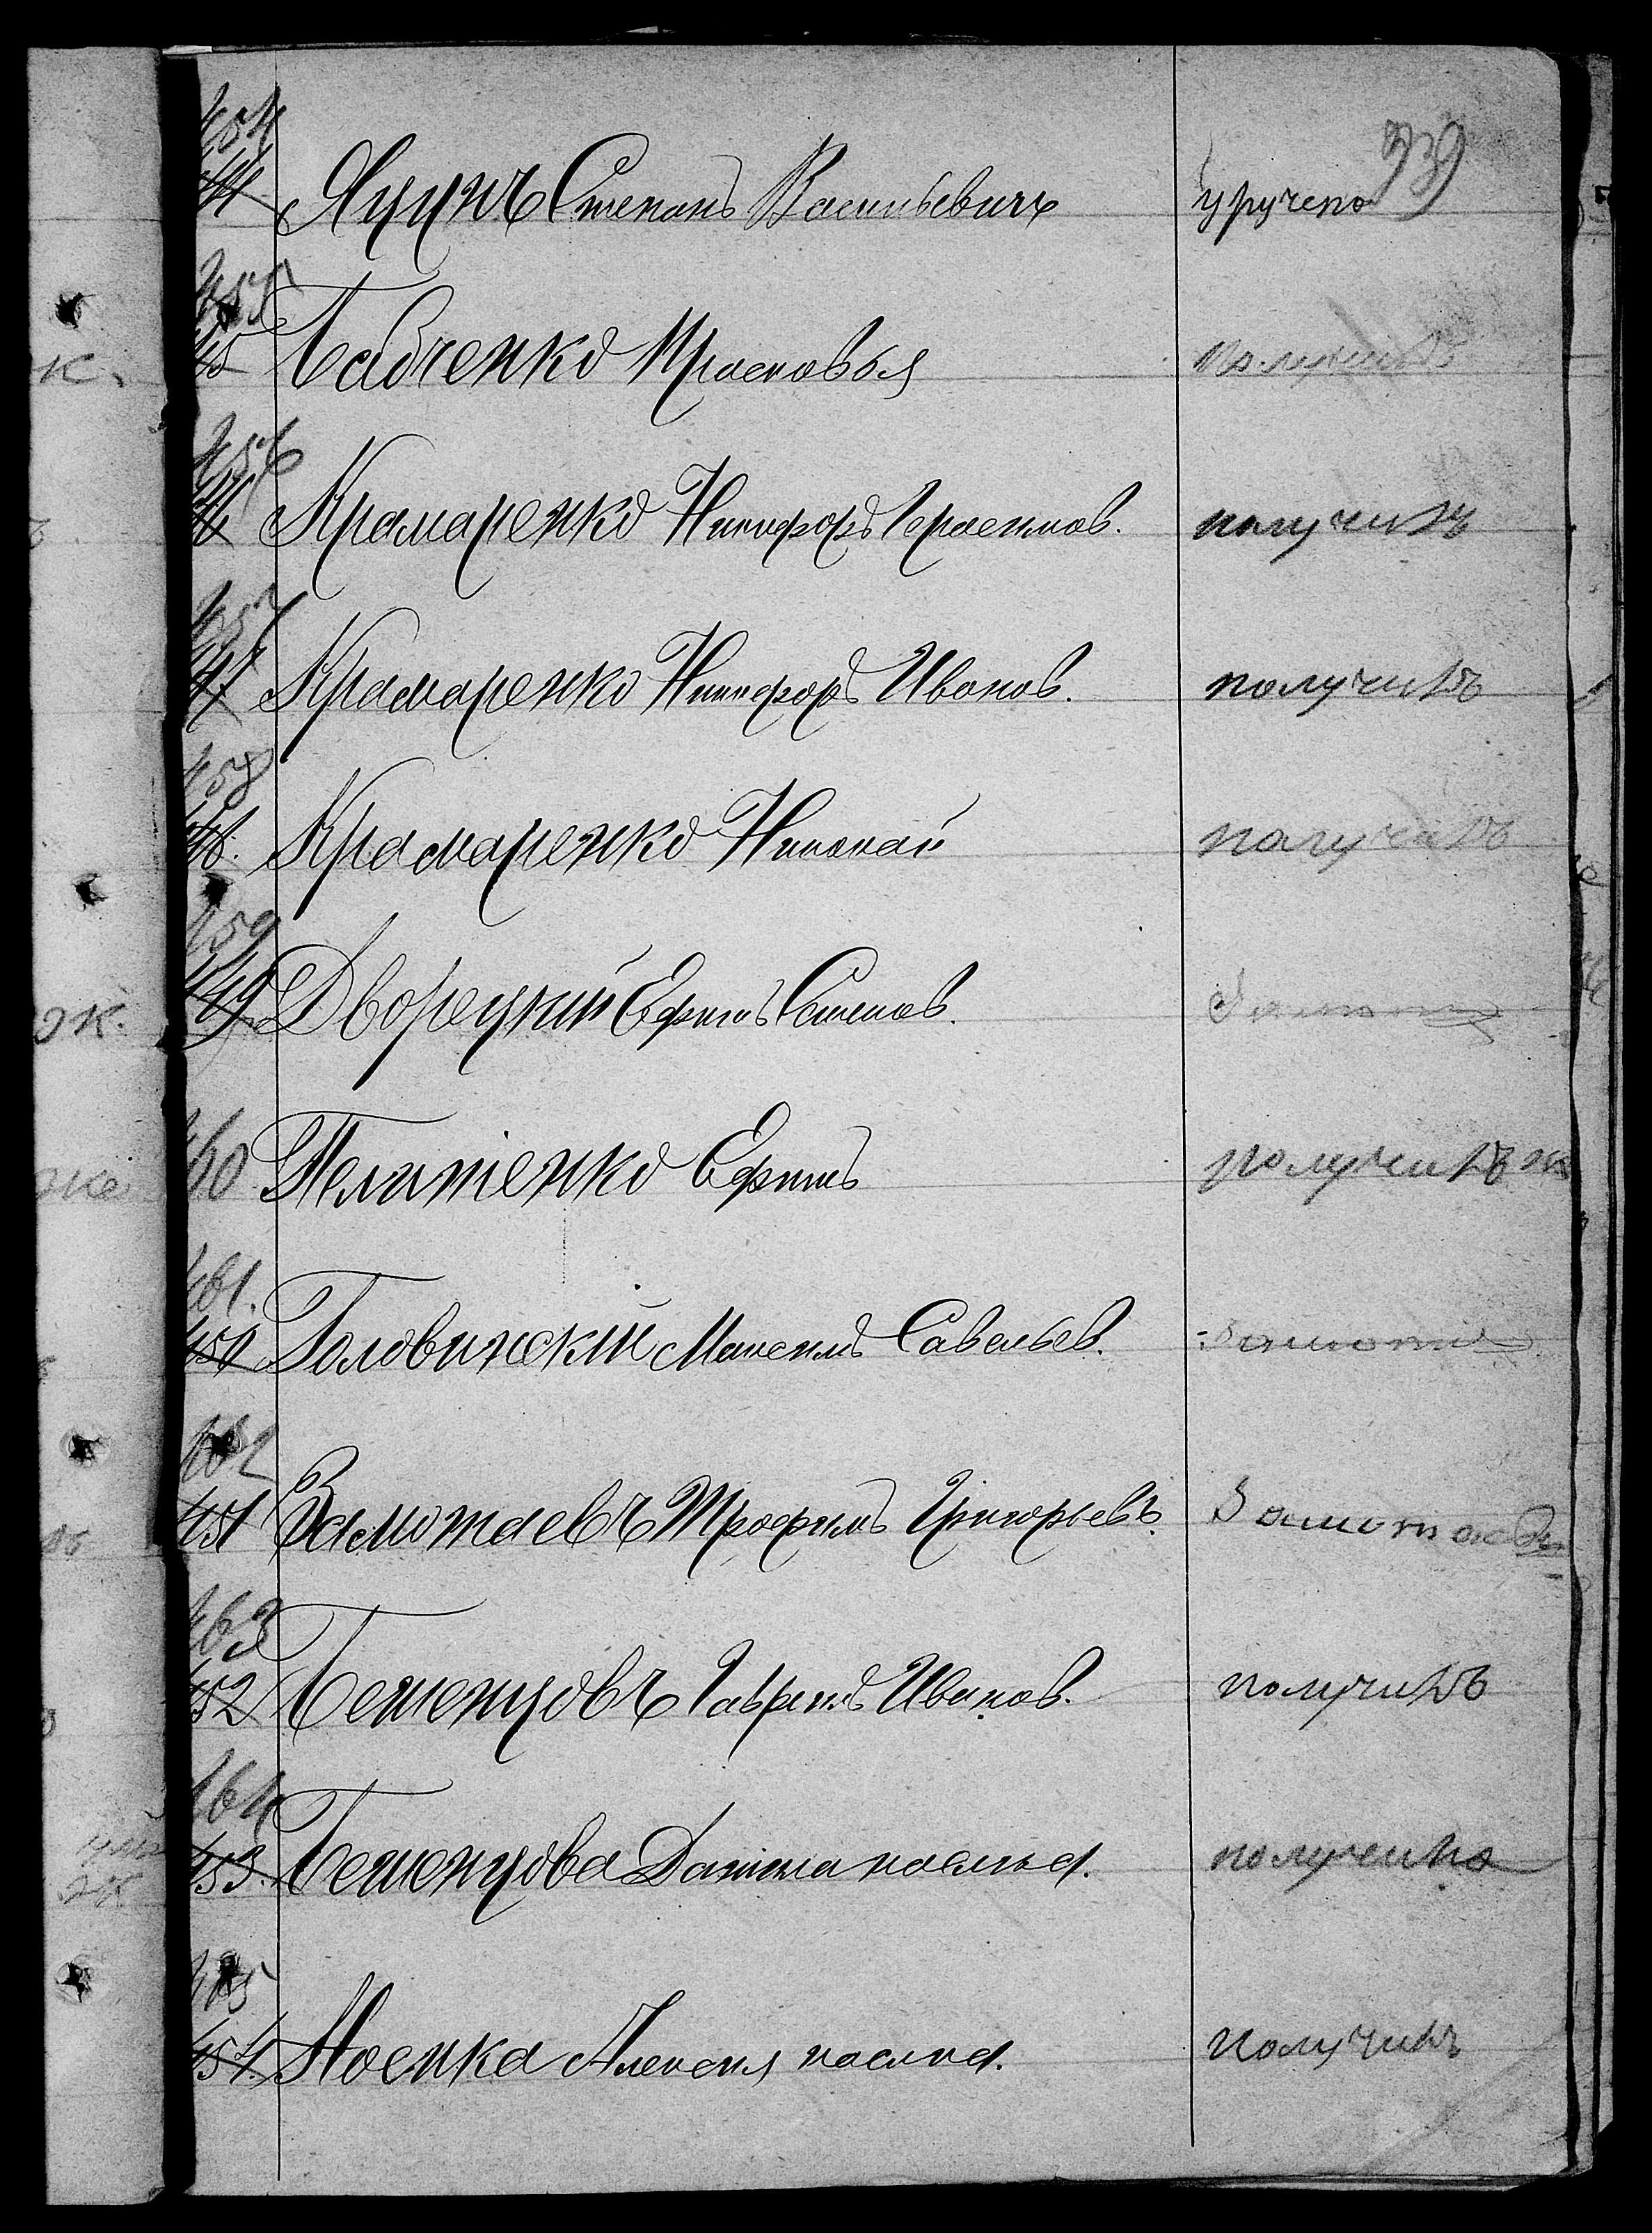 939
454
444 Яцунъ Степанъ Васильевичъ уручено
455
445 Бабченко Прасковья получилъ
456
446 Крамаренко Никифоръ Герасимов. получилъ
457
447 Крамаренко Никифоръ Иванов. получилъ
458
448. Крамаренко Николай получилъ
459
449 Дворецкий Ефимъ Семенов.
460 Телятенко Ефимъ получилъ
461.
450 Головинский Максимъ Савельев.
462
451 Замотаевъ Трофимъ Григорьевъ. Замотаевъ
463
452 Беженцовъ Гаврилъ Иванов. получилъ
464
453. Беженцова Домна насл-ца. получила
465
454. Ноенка Алексея насл-ца. получилъ